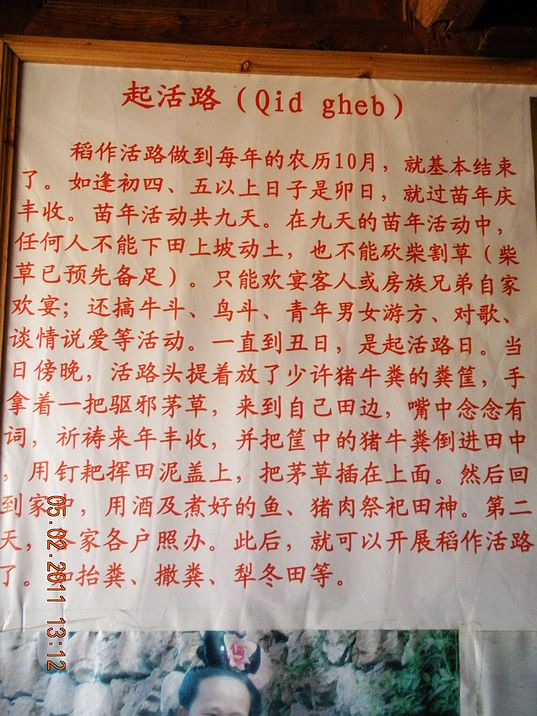 起活路（Qid gheb）
稻作活路做到每年的农历10月，就基本结束
了。如逢初四、五以上日子是卯日，就过苗年庆
丰收。苗年活动共九天。在九天的苗年活动中，
任何人不能下田上坡动土，也不能砍柴割草（柴
草已预先备足）。只能欢宴客人或房族兄弟自家
欢宴；还搞牛斗、鸟斗、青年男女游方、对歌、
谈情说爱等活动。一直到丑日，是起活路日。当
日傍晚，活路头提着放了少许猪牛粪的粪筐，手
拿着一把驱邪茅草，来到自己田边，嘴中念念有
词，祈祷来年丰收，并把筐中的猪牛粪倒进田中
，用钉耙挥田泥盖上，把茅草插在上面。然后回
到家中，用酒及煮好的鱼、猪肉祭祀田神。第二
天，家各户照办。此后，就可以开展稻作活路
了。抬粪、撒粪、犁冬田等。
05.02.2011 13:12